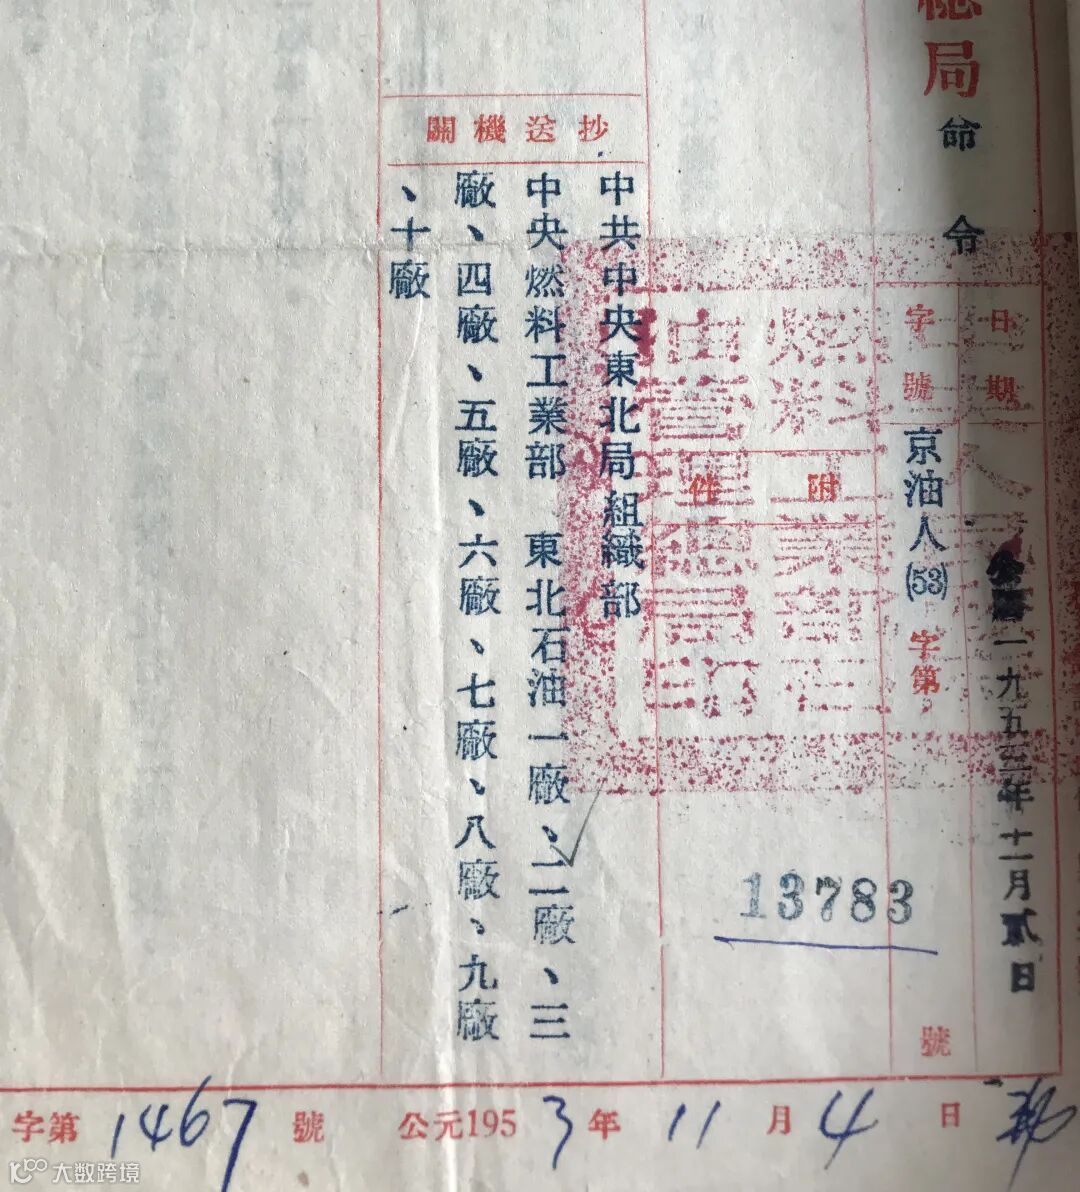 總局命令
日期
公曆一九五三年十一月貳日
字號
京油人(53)字第13783號
附件
中央人民政府
燃料工業部石
油管理總局印
抄送機關
中共中央東北局組織部
中央燃料工業部 東北石油一廠、二廠、三
廠、四廠、五廠、六廠、七廠、八廠、九廠
、十廠
字第1467號 公元1953年11月4日
大数跨境